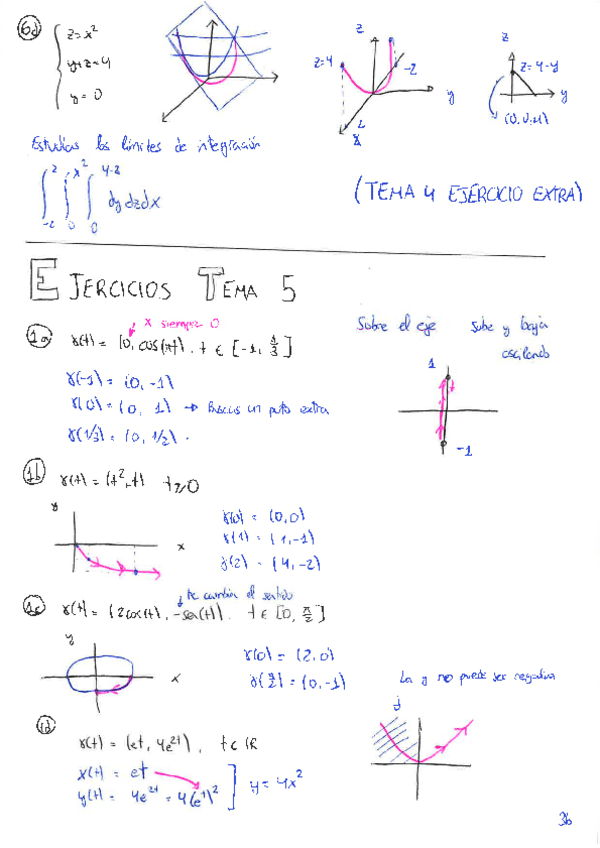 6d) z=x²
y+z=4
y=0
z
z=4
-2
y
2
x
z
z=4-y
y
(0,0,4)
Estudias los límites de integración
∫₋₂² ∫₀^x² ∫₀^4-z dy dz dx
(TEMA 4 EJERCICIO EXTRA)
EJERCICIOS TEMA 5
x siempre 0
1a) γ(t) = (0, cos(πt)). t ∈ [-1, 1/3]
Sobre el eje sube y baja
oscilando
γ(-1) = (0, -1)
γ(0) = (0, 1) → Buscas un pto extra
γ(1/3) = (0, 1/2).
1
-1
1b) γ(t) = (t², -t) t≥0
y
x
γ(0) = (0,0)
γ(1) = (1,-1)
γ(2) = (4,-2)
te cambia el sentido
1c) γ(t) = (2cos(t), -sen(t)). t ∈ [0, π/2]
y
x
γ(0) = (2,0)
γ(π/2) = (0,-1)
La y no puede ser negativa
1d)
γ(t) = (et, 4e^2t), t ∈ ℝ
x(t) = et
y(t) = 4e^2t = 4(e^t)²
y = 4x²
36